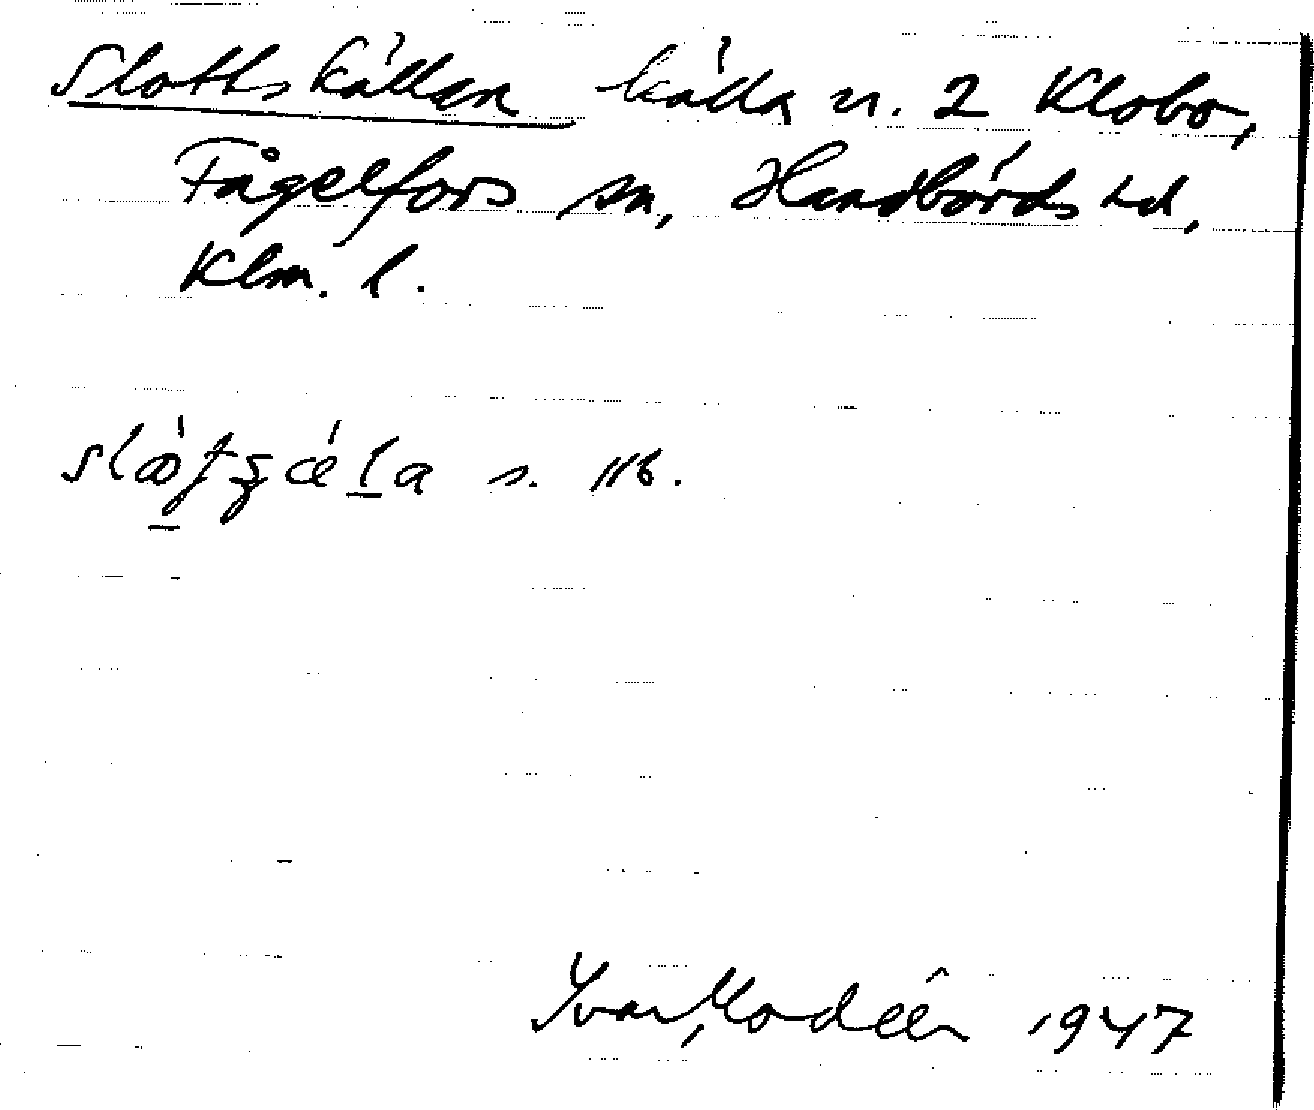 Slottskällan källa n. 2 Klobo,
Fågelfors sn, Handbörds hd,
Klm. l.
s. 116.
Ivar Modéer 1947